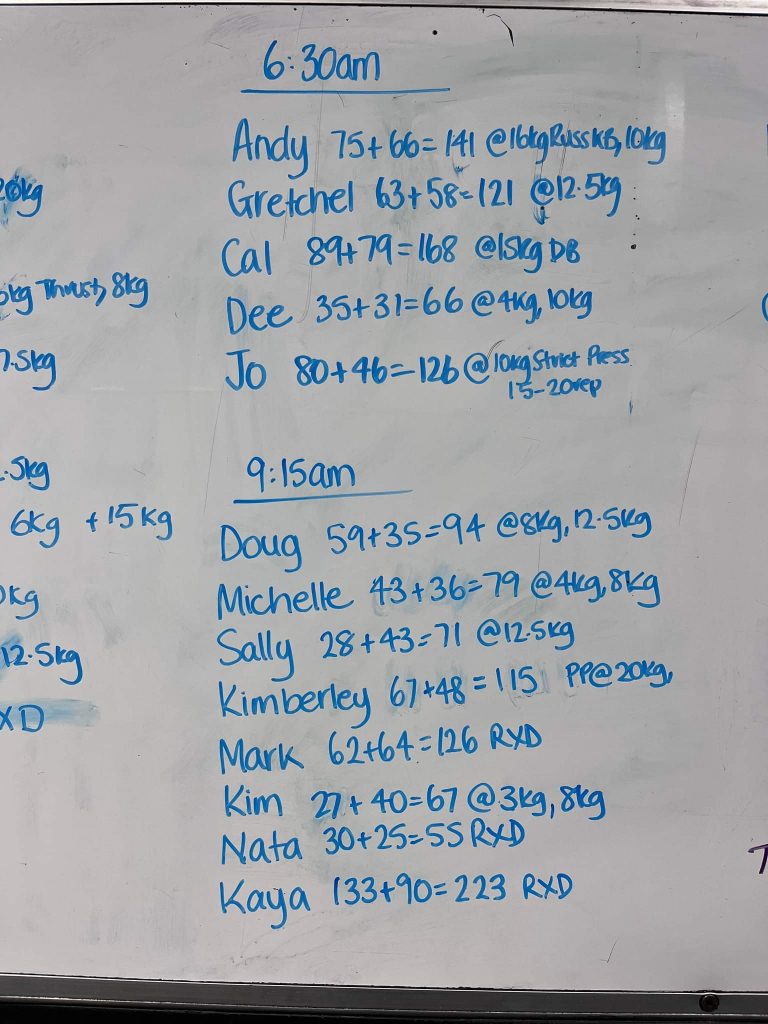 6:30am
Andy 75+66=141 @16kg Russ KB, 10kg
Gretchel 63+58=121 @12.5kg
Cal 89+79=168 @15kg DB
Dee 35+31=66 @4kg, 10kg
Jo 80+46=126 @10kg Strict Press
15-20rep
9:15am
Doug 59+35=94 @8kg, 12.5kg
Michelle 43+36=79 @4kg, 8kg
Sally 28+43=71 @12.5kg
Kimberley 67+48=115 PP@20kg,
Mark 62+64=126 RXD
Kim 27+40=67 @3kg, 8kg
Nata 30+25=55 RXD
Kaya 133+90=223 RXD
20kg
kg Thrust, 8kg
7.5kg
.5kg
6kg +15kg
0kg
12.5kg
XD